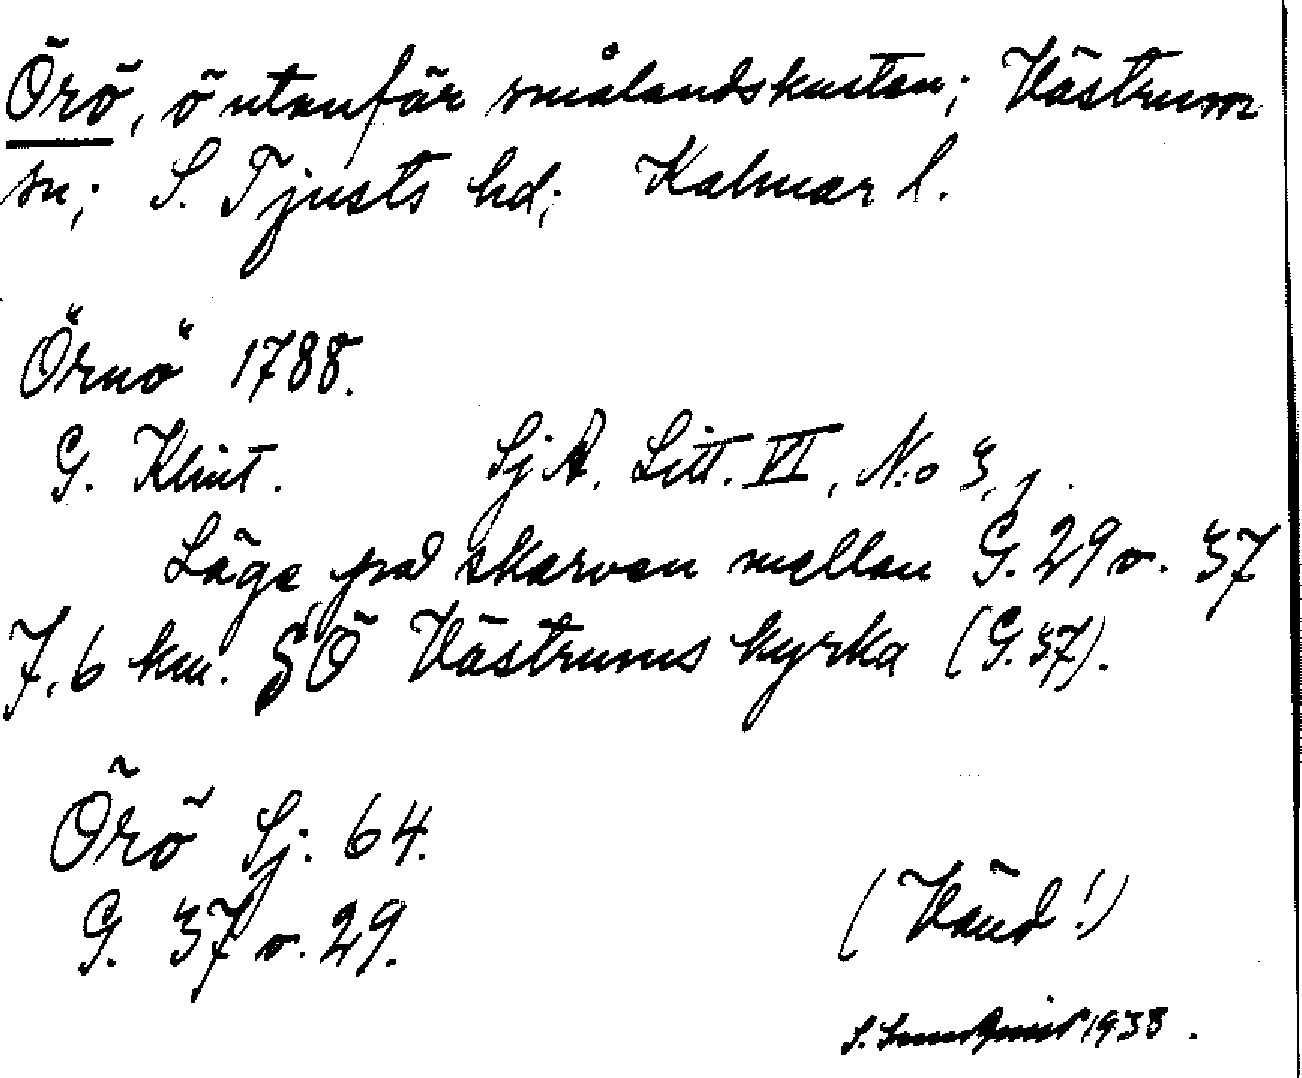 Örö, ö utanför smålandskusten; Västrum
sn; S. Tjusts hd; Kalmar l.
Örnö 1788.
G. Klint. SjA. Litt. VI, N:o 3, 1.
Läge på skarven mellan G. 29 o. 37
7,6 km. SÖ Västrums kyrka (G. 37).
Örö Sj. 64.
G. 37 o. 29.
(Vänd!)
S. 1938.